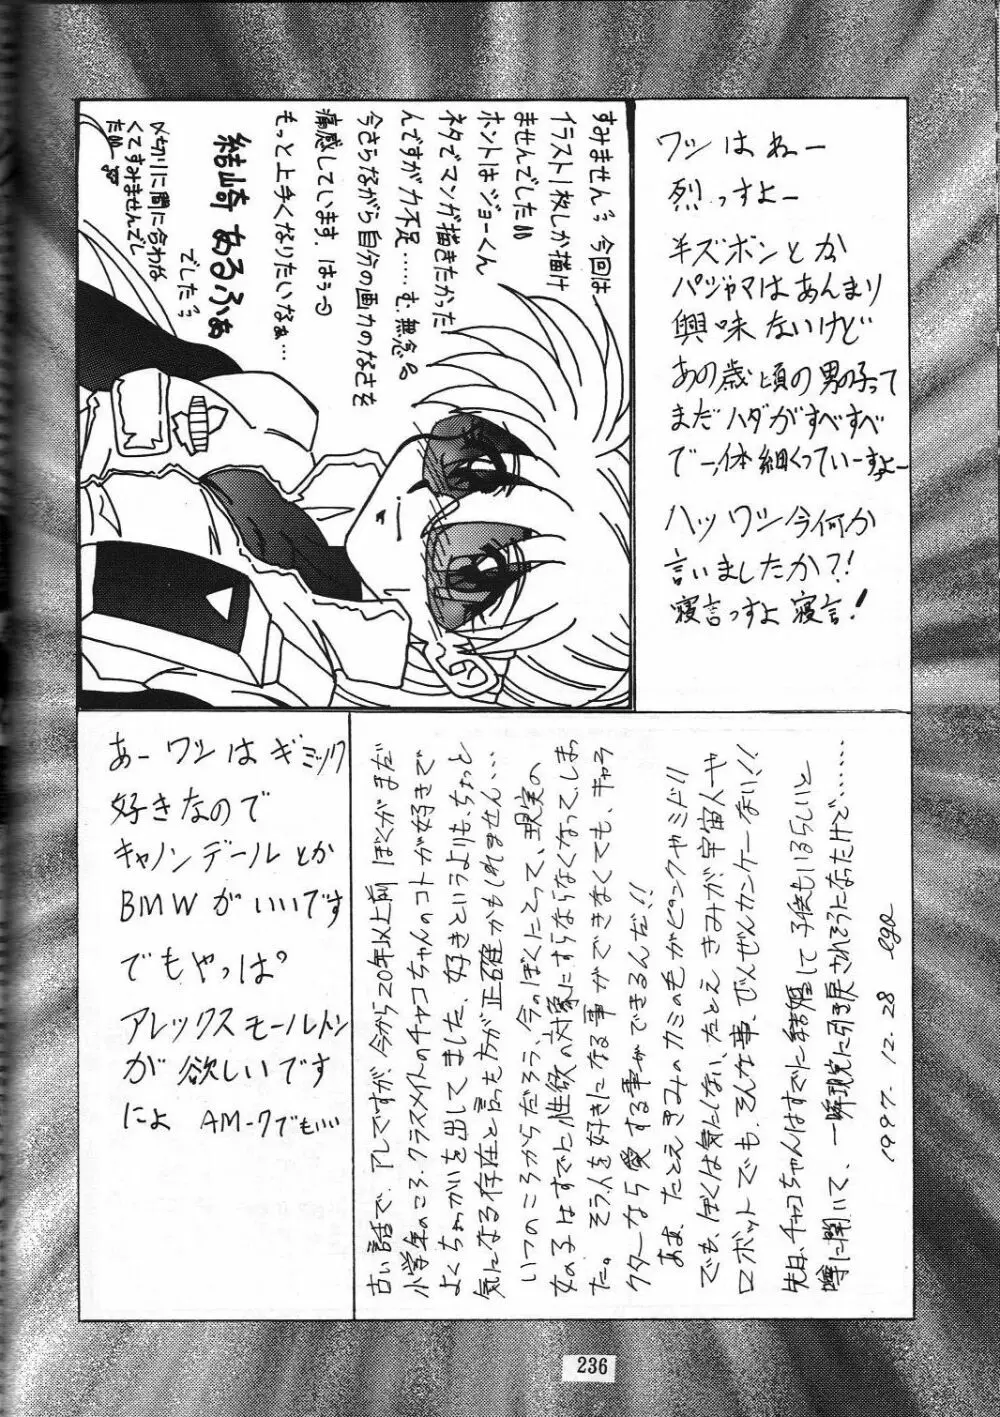 ワシはねー
烈っすよー
半ズボンとか
パジャマはあんまり
興味ないけど
あの歳頃の男の子って
まだハダがすべすべ
でー、体細くっていーすよー
ハッワシ今何か
言いましたか?!
寝言っすよ寝言!
すみません 今回は
イラスト1枚しか描け
ませんでした
ホントはジョーくん
ネタでマンガ描きたかった
んですが力不足……む無念。
今さらながら自分の画力のなさを
痛感しています。はうっ
もっと上手くなりたいなぁ…
結崎あるふぁ
でした
〆切りに間に合わな
くてすみませんでし
たー
あーワシはギミック
好きなので
キャノンデールとか
BMWがいいです
でもやっぱ
アレックスモールトン
が欲しいです
によ AM-7でもいい
古い話で、アレですが、今から20年以上前 ぼくがまだ
小学生のころ、クラスメイトのチャコちゃんのコトが好きで
よくちょっかいを出してました、好きというよりも、ちょっと
気になる存在と言った方が正確かもしれません…
いつのころからだろう、今のぼくにとって、現実の
女の子はすでに性欲の対象にすらならなくなってしま
った。そう人を好きになる事ができなくても、キャラ
クターなら愛する事ができるんだ!!
ああ、たとえきみのカミの毛がピンクやミドリ!!
でも、ぼくは気にしない、たとえきみが、宇宙人や
ロボットでも、そんな事、ぜんぜんカンケーない!!
先日、チャコちゃんはすでに結婚して子供もいるらしいと
噂に聞いて、一瞬現実に引き戻されそうになったけど……
1997.12.28 ega
236